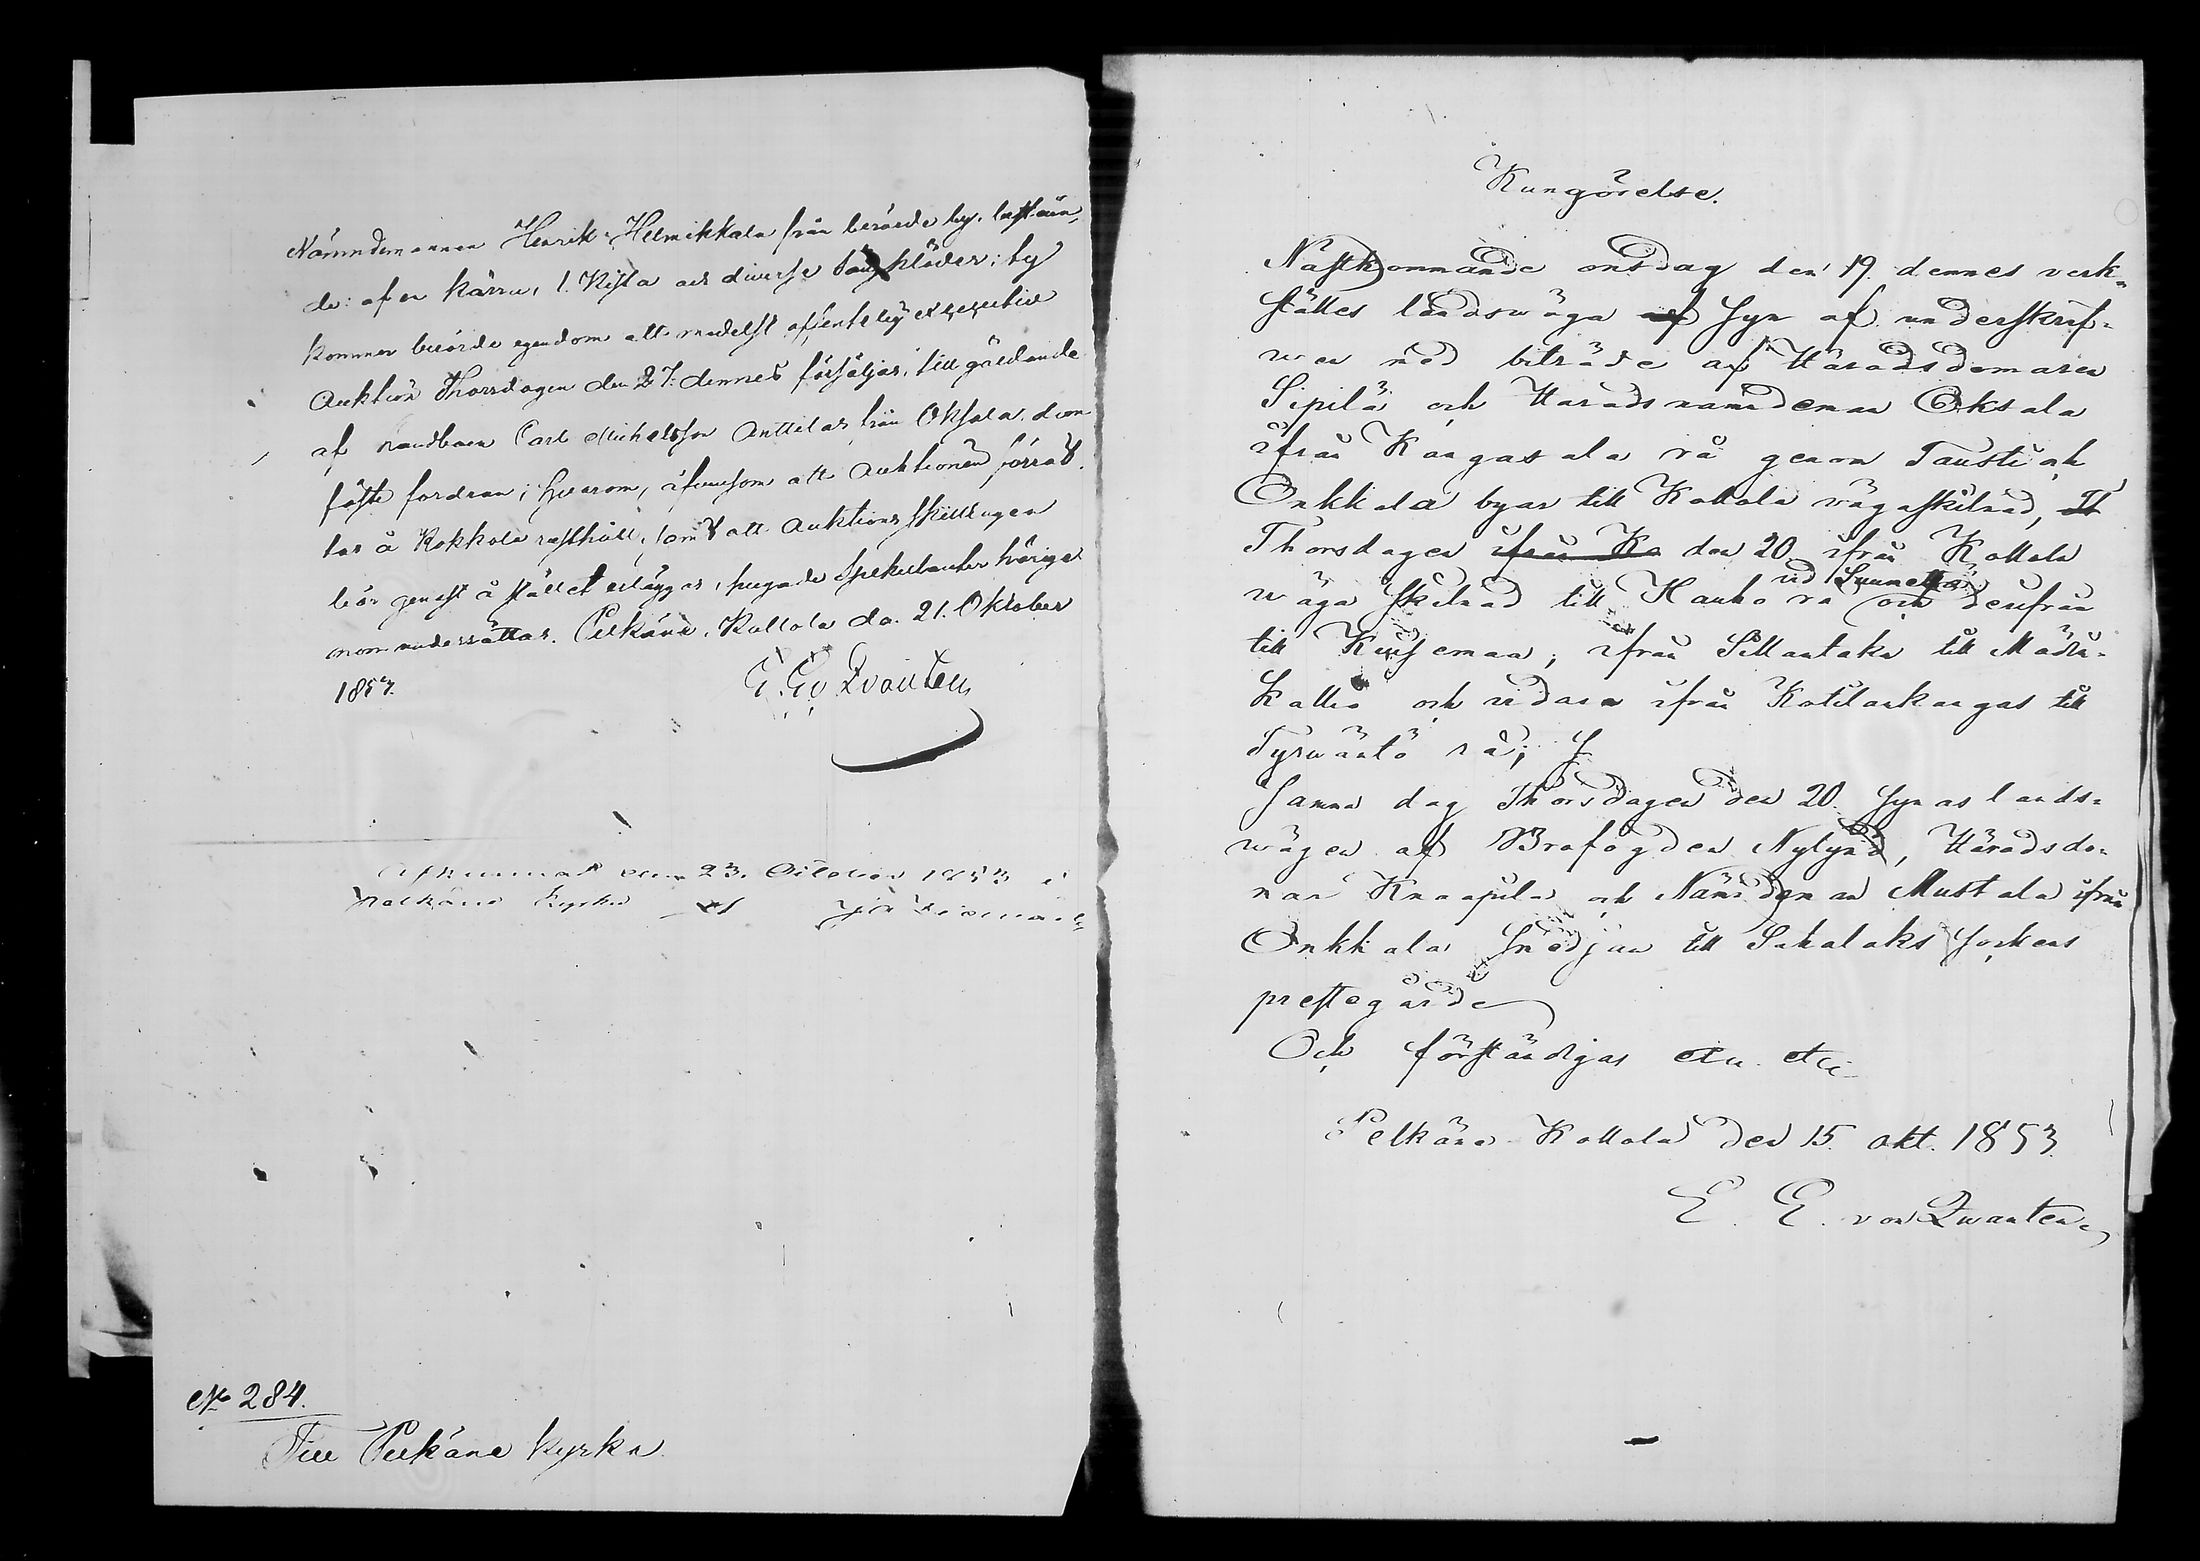 Nämndemannen Henrik Helmikkala från berörde by, bestäen,
de: af en kärra, 1. Kista och diverse kläder; ty
kommer berörde egendom att medelst offentelig executive
Auktion Thorsdagen den 27. dennes försäljas, till gäldande
af randbaen Carl Michelsson Anttilas från Oksala, dom
fäste fordran; hvarom, äfvensom att Auktionen förrät,
tas å Kokkola rusthåll, samt att Auktions skillingen
bör genast å stället erlägges, hugade Spekulanter härige,
nom underrättas. Pelkäne, Kollola da. 21. Oktober
1853.
E. E. v Qvanten
Afkunnat den 23. October 1853 i
Pelkäne Kyrka af
No 284.
Till Pelkäne kyrka.
Kungörelse.
Nästkommande onsdag den 19. dennes verk-
ställes landsväga syn af underskrif-
wen med biträde af Häradsdomaren
Sipilä och Häradsnämndeman Oksala
ifrån Kangasala rå genom Tausti och
Onkkala byar till Kollola vägaskilnad, Th
Thorsdagen ifrån Ko den 20 ifrån Kollola
wäga skilnad till Hauho rå vid och derifrån
till Kuisemaa, ifrån Sillantaka till
kallio och vidare ifrån Kotilankangas till
Tyrwäntö rå; S
Samma dag Thorsdagen den 20. synas lands-
wägen af Brofogden Nylynd, Häradsdo-
mar Knaapila och Nämndeman Mustala ifrån
Onkkala smedjan till Sahalaks sockens
prestegård
Och förständigas etc. etc.
Pelkäne Kollola den 15. okt. 1853.
E. E. von Qwanten